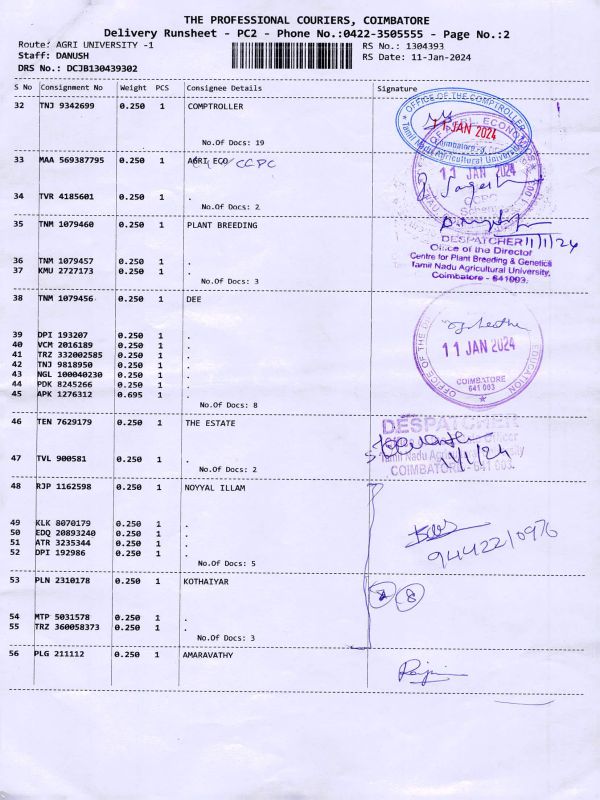 THE PROFESSIONAL COURIERS, COIMBATORE
Delivery Runsheet - PC2 - Phone No.:0422-3505555 - Page No.:2
Route: AGRI UNIVERSITY -1 RS No.: 1304393
Staff: DANUSH RS Date: 11-Jan-2024
DRS No.: DCJB130439302
S No Consignment No Weight PCS Consignee Details Signature
32 TNJ 9342699 0.250 1 COMPTROLLER
OFFICE OF THE COMPTROLLER
11 JAN 2024
Tamil Nadu Agricultural University
No.Of Docs: 19
33 MAA 569387795 0.250 1 AGRI ECO CCPC
11 JAN 2024
34 TVR 4185601 0.250 1 .
No.Of Docs: 2
35 TNM 1079460 0.250 1 PLANT BREEDING
DESPATCHER 11/1/24
Office of the Director
Centre for Plant Breeding & Genetics
Tamil Nadu Agricultural University,
Coimbatore - 641003.
36 TNM 1079457 0.250 1 .
37 KMU 2727173 0.250 1 .
No.Of Docs: 3
38 TNM 1079456 0.250 1 DEE
39 DPI 193207 0.250 1 .
40 VCM 2016189 0.250 1 .
41 TRZ 332002585 0.250 1 .
42 TNJ 9818950 0.250 1 .
43 NGL 100040230 0.250 1 .
44 PDK 8245266 0.250 1 .
45 APK 1276312 0.695 1 .
No.Of Docs: 8
11 JAN 2024
EDUCATION
COIMBATORE
641 003
46 TEN 7629179 0.250 1 THE ESTATE
DESPATCHER
Officer
Tamil Nadu
COIMBATORE - 641 003.
11/1/24
47 TVL 900581 0.250 1 .
No.Of Docs: 2
48 RJP 1162598 0.250 1 NOYYAL ILLAM
49 KLK 8070179 0.250 1 .
50 EDQ 20893240 0.250 1 .
51 ATR 3235344 0.250 1 .
52 DPI 192986 0.250 1 .
No.Of Docs: 5
9442210976
53 PLN 2310178 0.250 1 KOTHAIYAR
8
54 MTP 5031578 0.250 1 .
55 TRZ 360058373 0.250 1 .
No.Of Docs: 3
56 PLG 211112 0.250 1 AMARAVATHY